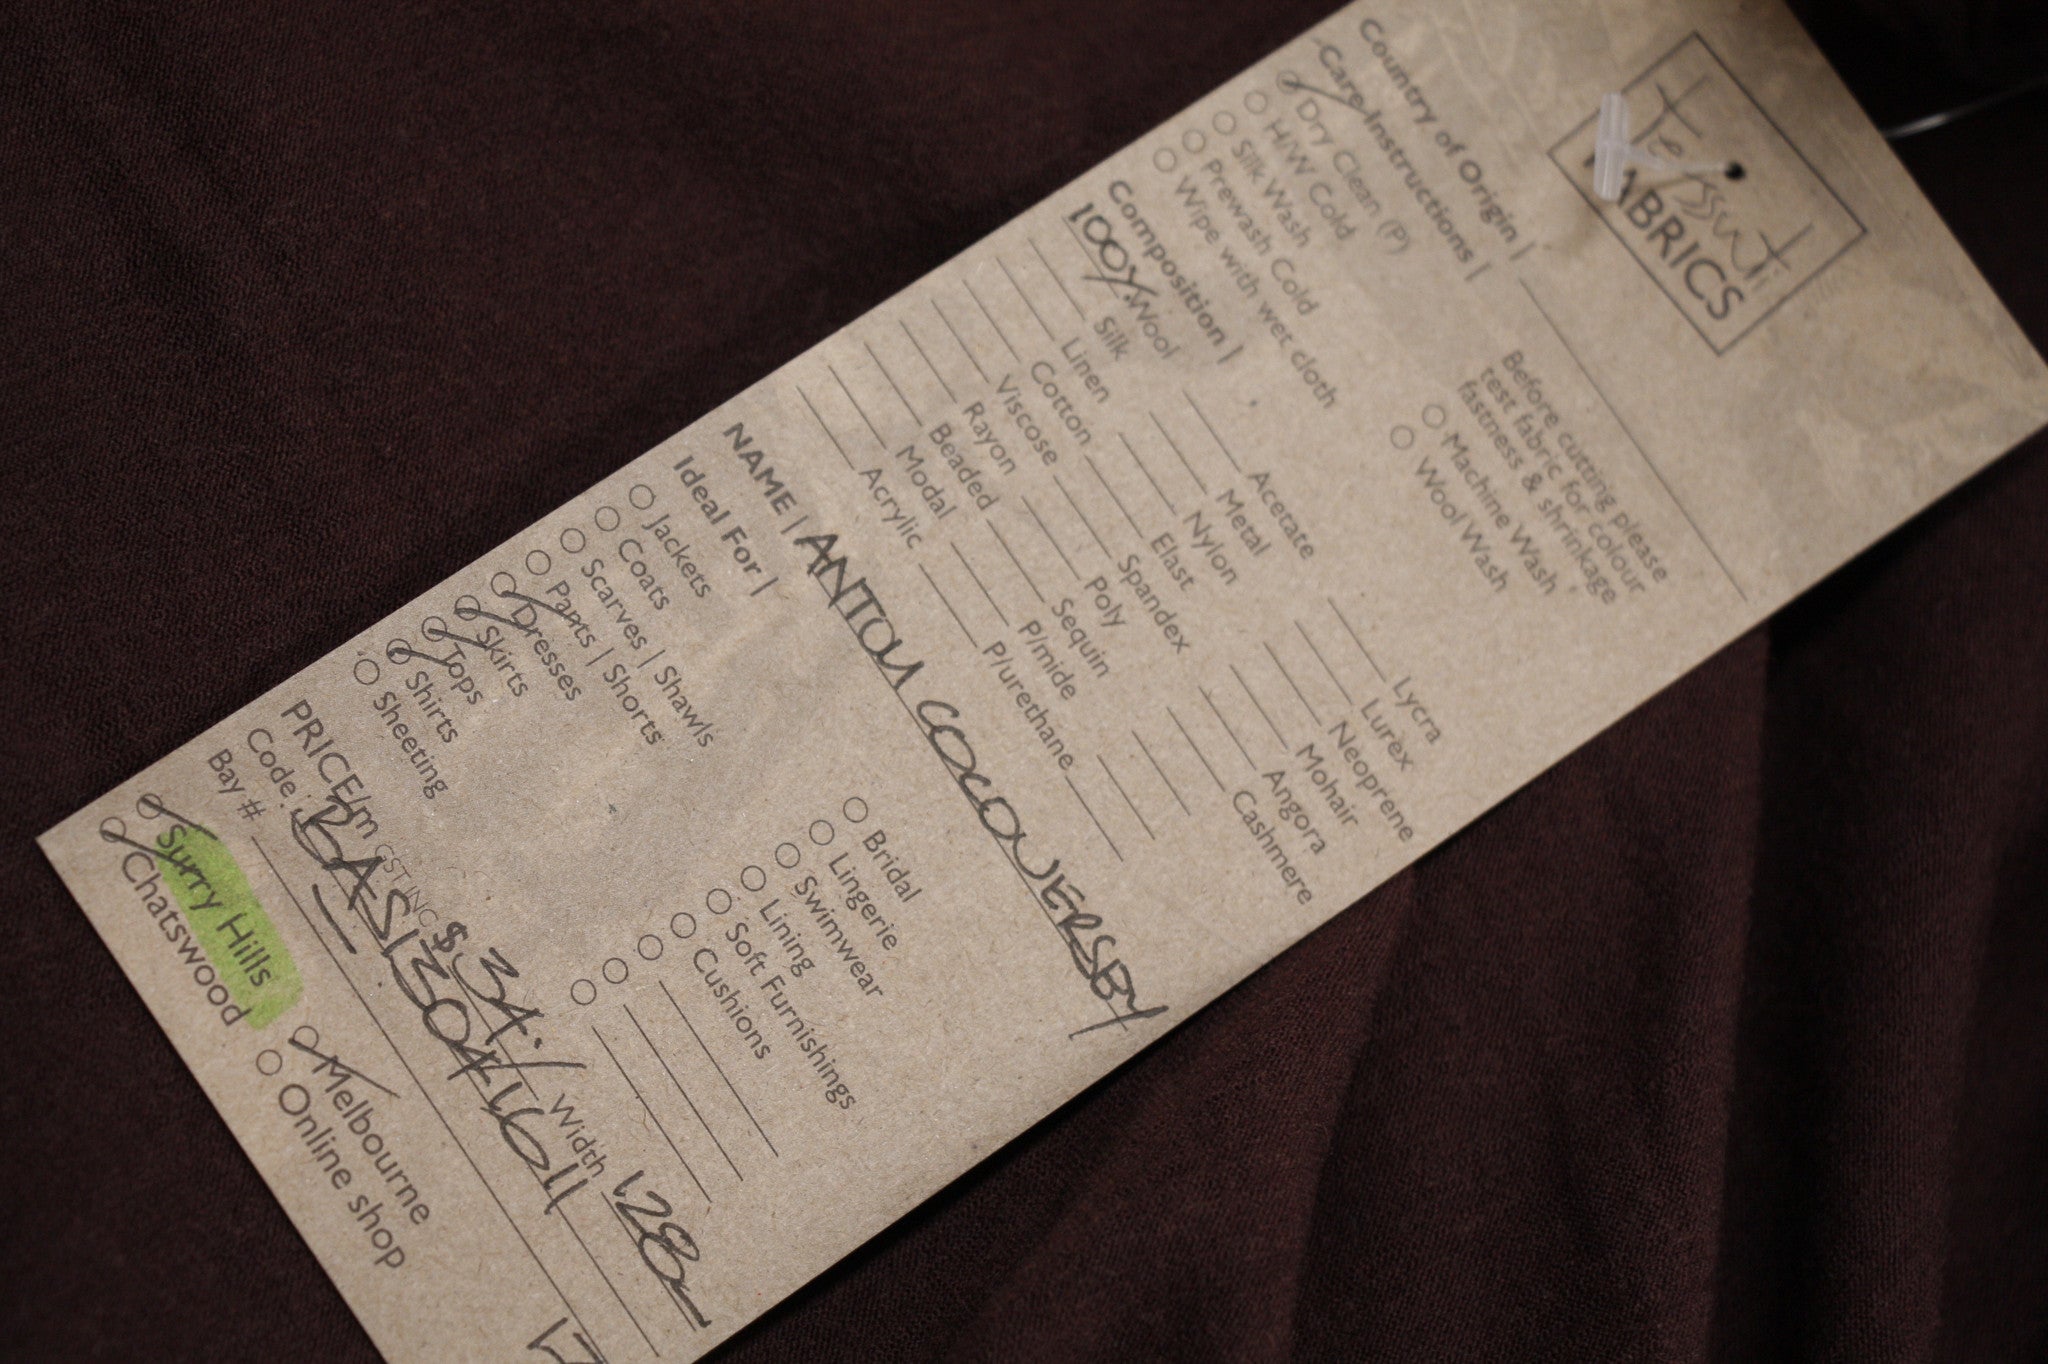 Tessuti
FABRICS
Country of Origin |
Care Instructions |
Before cutting please
test fabric for colour
fastness & shrinkage
Dry Clean (P)
H/W Cold
Silk Wash
Prewash Cold
Wipe with wet cloth
Machine Wash
Wool Wash
Composition |
100% Wool
Silk
Linen
Cotton
Viscose
Rayon
Beaded
Modal
Acrylic
Acetate
Metal
Nylon
Elast
Spandex
Poly
Sequin
P/mide
P/urethane
Lycra
Lurex
Neoprene
Mohair
Angora
Cashmere
NAME |
Ideal For |
Jackets
Coats
Scarves | Shawls
Pants | Shorts
Dresses
Skirts
Tops
Shirts
Sheeting
Bridal
Lingerie
Swimwear
Lining
Soft Furnishings
Cushions
PRICE/m GST INC $ 34.- Width 128
Code:
Bay #
Surry Hills
Chatswood
Melbourne
Online shop